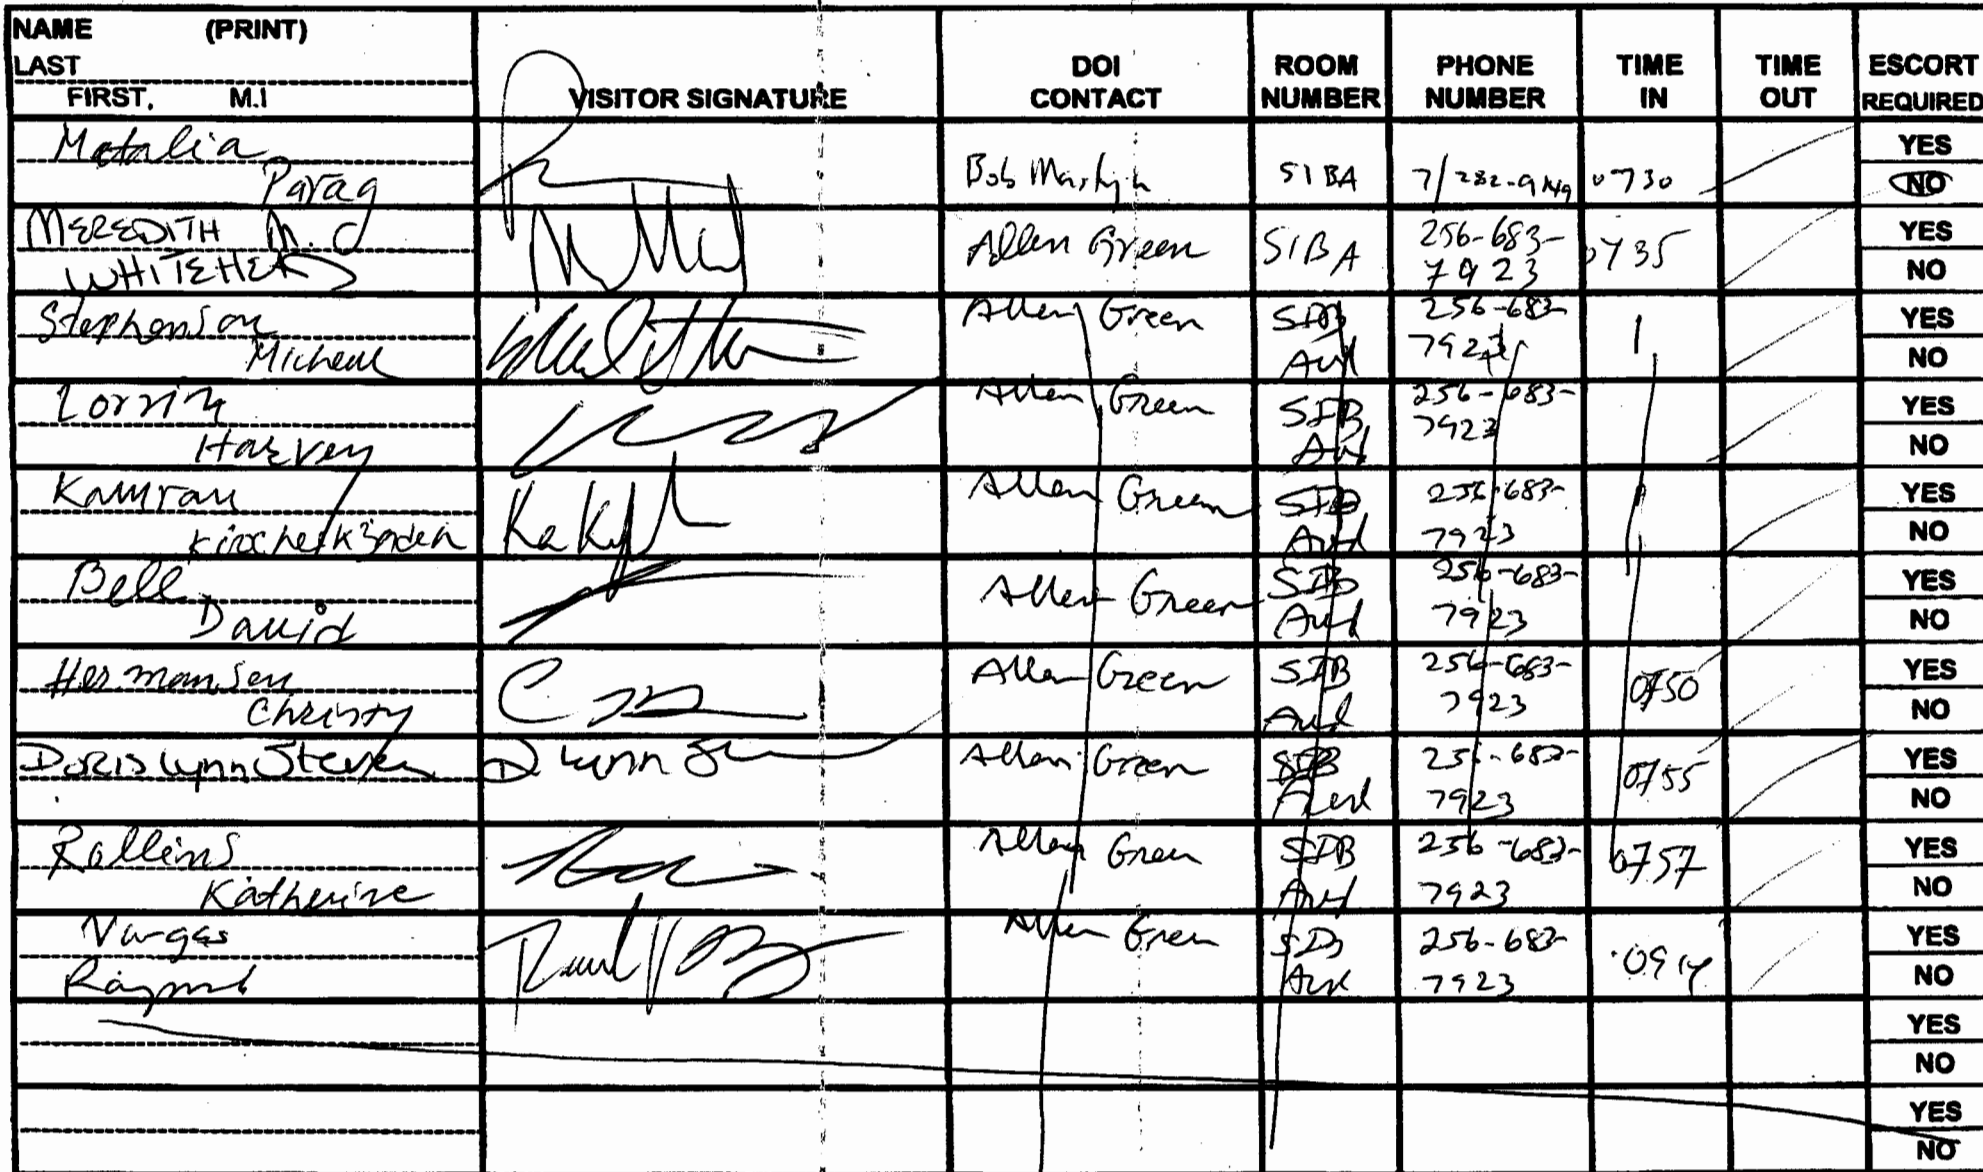 NAME (PRINT)
LAST
FIRST, M.I
VISITOR SIGNATURE
DOI CONTACT
ROOM NUMBER
PHONE NUMBER
TIME IN
TIME OUT
ESCORT REQUIRED
Motalia
Parag
Bob SIBA 7/282-9149 0730
YES
NO
MEREDITH M. C
WHITEHEAD
Allen Green SIBA 256-683-
7923
0735
YES
NO
Stephenson
Micheal
Allen Green SIB 256-683-
Aud 7923
YES
NO
Lorrin
Harvey
Allen Green SIB 256-683-
Aud 7923
YES
NO
Kamran
Allen Green SIB 256-683-
Aud 7923
YES
NO
Bell
David
Allen Green SIB 256-683-
Aud 7923
YES
NO
Hermansen
Christy
Allen Green SIB 256-683-
Aud 7923
0750
YES
NO
Doris Lynn Steven D Lynn
Allen Green SIB 256-683-
Aud 7923
0755
YES
NO
Rollins
Katherine
Allen Green SIB 256-683-
Aud 7923
0757
YES
NO
Vargas
Raymond
Allen Green SIB 256-683-
Aud 7923
0914
YES
NO
YES
NO
YES
NO